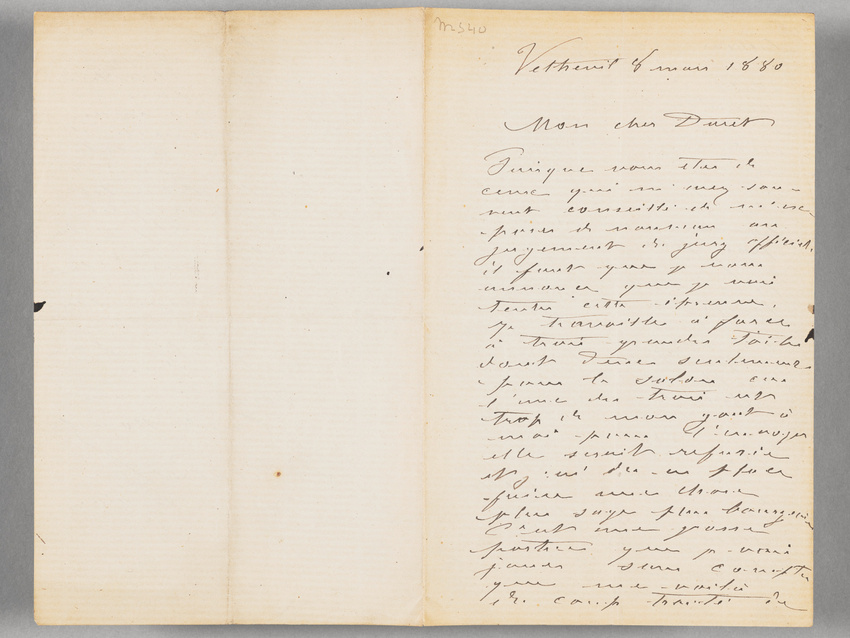 MS40
Vetheuil 8 mars 1880
Mon cher Duret
Puisque vous etes de
ceux qui m'avez sou-
vent conseillé de m'ex-
poser de nouveau au
jugement du jury officiel,
il faut que je vous
annonce que je vais
tenter cette épreuve.
Je travaille à force
à trois grandes toiles
dont deux seulement
pour le salon car
l'une des trois est
trop de mon gout à
moi pour l'envoyer
elle serait refusée
et j'ai du en place
faire une chose
plus sage plus bourgeoise
C'est une grosse
partie que je vais
jouer sans compter
que me voilà
du coup traité de